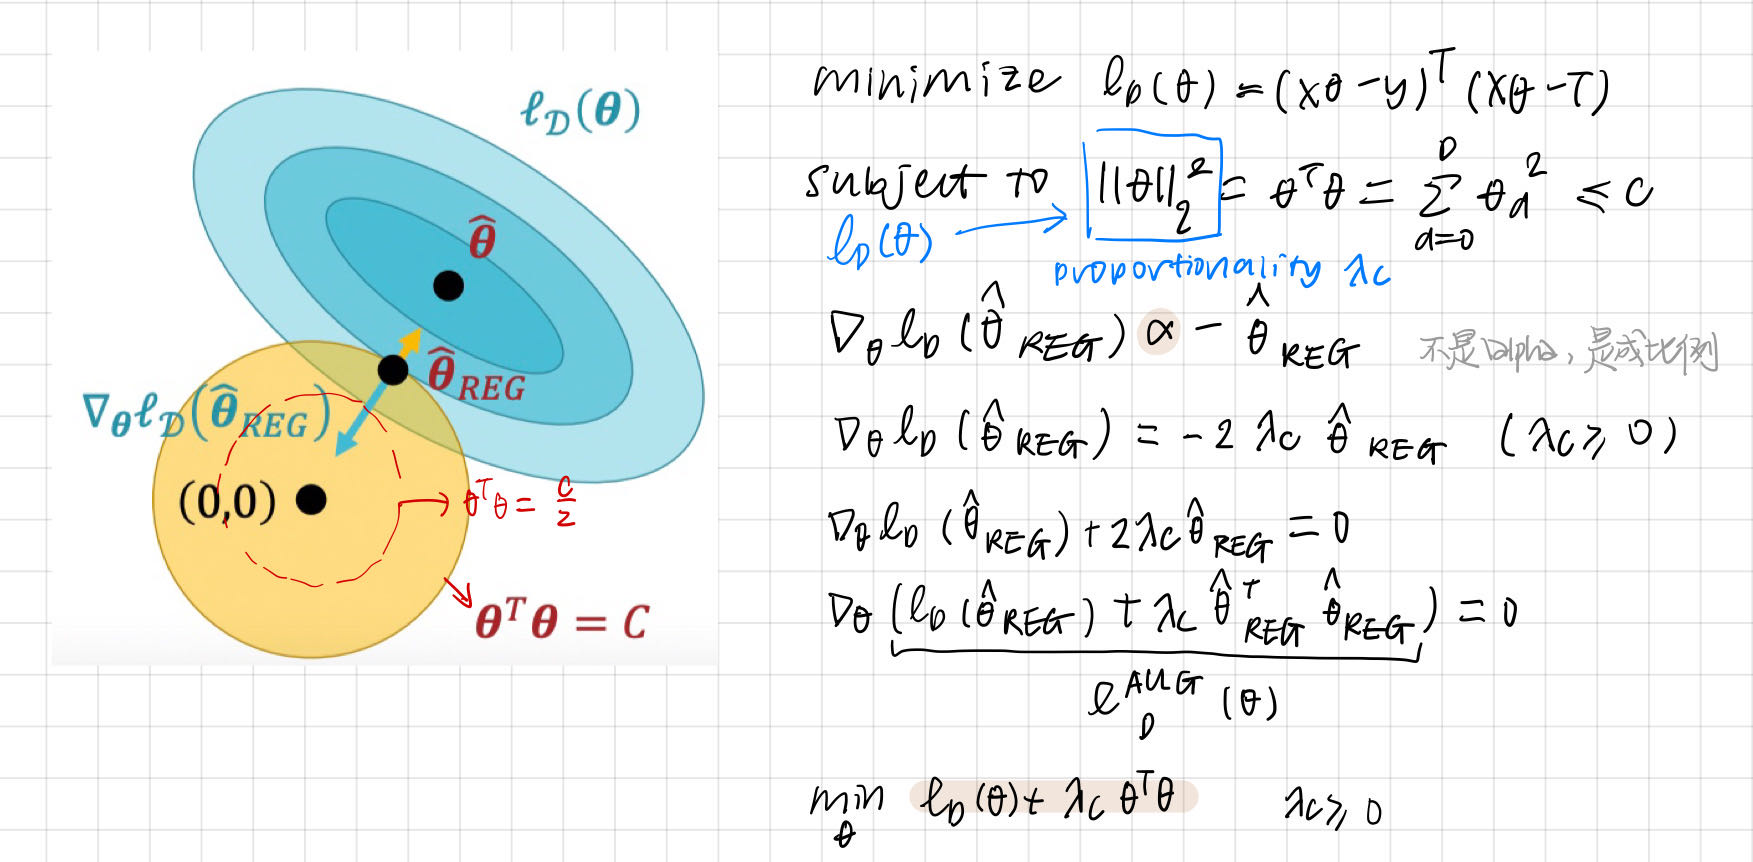 ℓ_𝒟(θ)
θ̂
θ̂_REG
∇_θ ℓ_𝒟(θ̂_REG)
(0,0)
θᵀθ = c/2
θᵀθ = C
minimize ℓ_D(θ) = (xθ - y)ᵀ (xθ - T)
subject to ||θ||₂² = θᵀθ = Σ_{d=0}^{D} θ_d² ≤ C
ℓ_D(θ) → proportionality λc
∇_θ ℓ_D (θ̂_REG) ∝ - θ̂_REG 不是alpha, 是成比例
∇_θ ℓ_D (θ̂_REG) = -2 λc θ̂_REG (λc ≥ 0)
∇_θ ℓ_D (θ̂_REG) + 2λc θ̂_REG = 0
∇_θ (ℓ_D (θ̂_REG) + λc θ̂ᵀ_REG θ̂_REG) = 0
ℓ_D^AUG (θ)
min_θ ℓ_D(θ) + λc θᵀθ λc ≥ 0